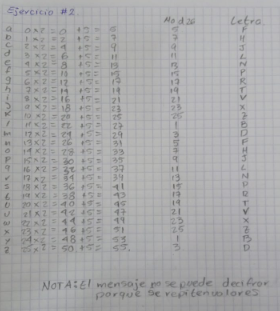 Ejercicio #2
Mod 26 Letra
a 0x2=0 +5= 5 5 F
b 1x2=2 +5= 7 7 H
c 2x2=4 +5= 9 9 J
d 3x2=6 +5= 11 11 L
e 4x2=8 +5= 13 13 N
f 5x2=10 +5= 15 15 P
g 6x2=12 +5= 17 17 R
h 7x2=14 +5= 19 19 T
i 8x2=16 +5= 21 21 V
j 9x2=18 +5= 23 23 X
k 10x2=20 +5= 25 25 Z
l 11x2=22 +5= 27 1 B
m 12x2=24 +5= 29 3 D
n 13x2=26 +5= 31 5 F
o 14x2=28 +5= 33 7 H
p 15x2=30 +5= 35 9 J
q 16x2=32 +5= 37 11 L
r 17x2=34 +5= 39 13 N
s 18x2=36 +5= 41 15 P
t 19x2=38 +5= 43 17 R
u 20x2=40 +5= 45 19 T
v 21x2=42 +5= 47 21 V
w 22x2=44 +5= 49 23 X
x 23x2=46 +5= 51 25 Z
y 24x2=48 +5= 53 1 B
z 25x2=50 +5= 55 3 D
NOTA: El mensaje no se puede decifrar
porque se repiten valores